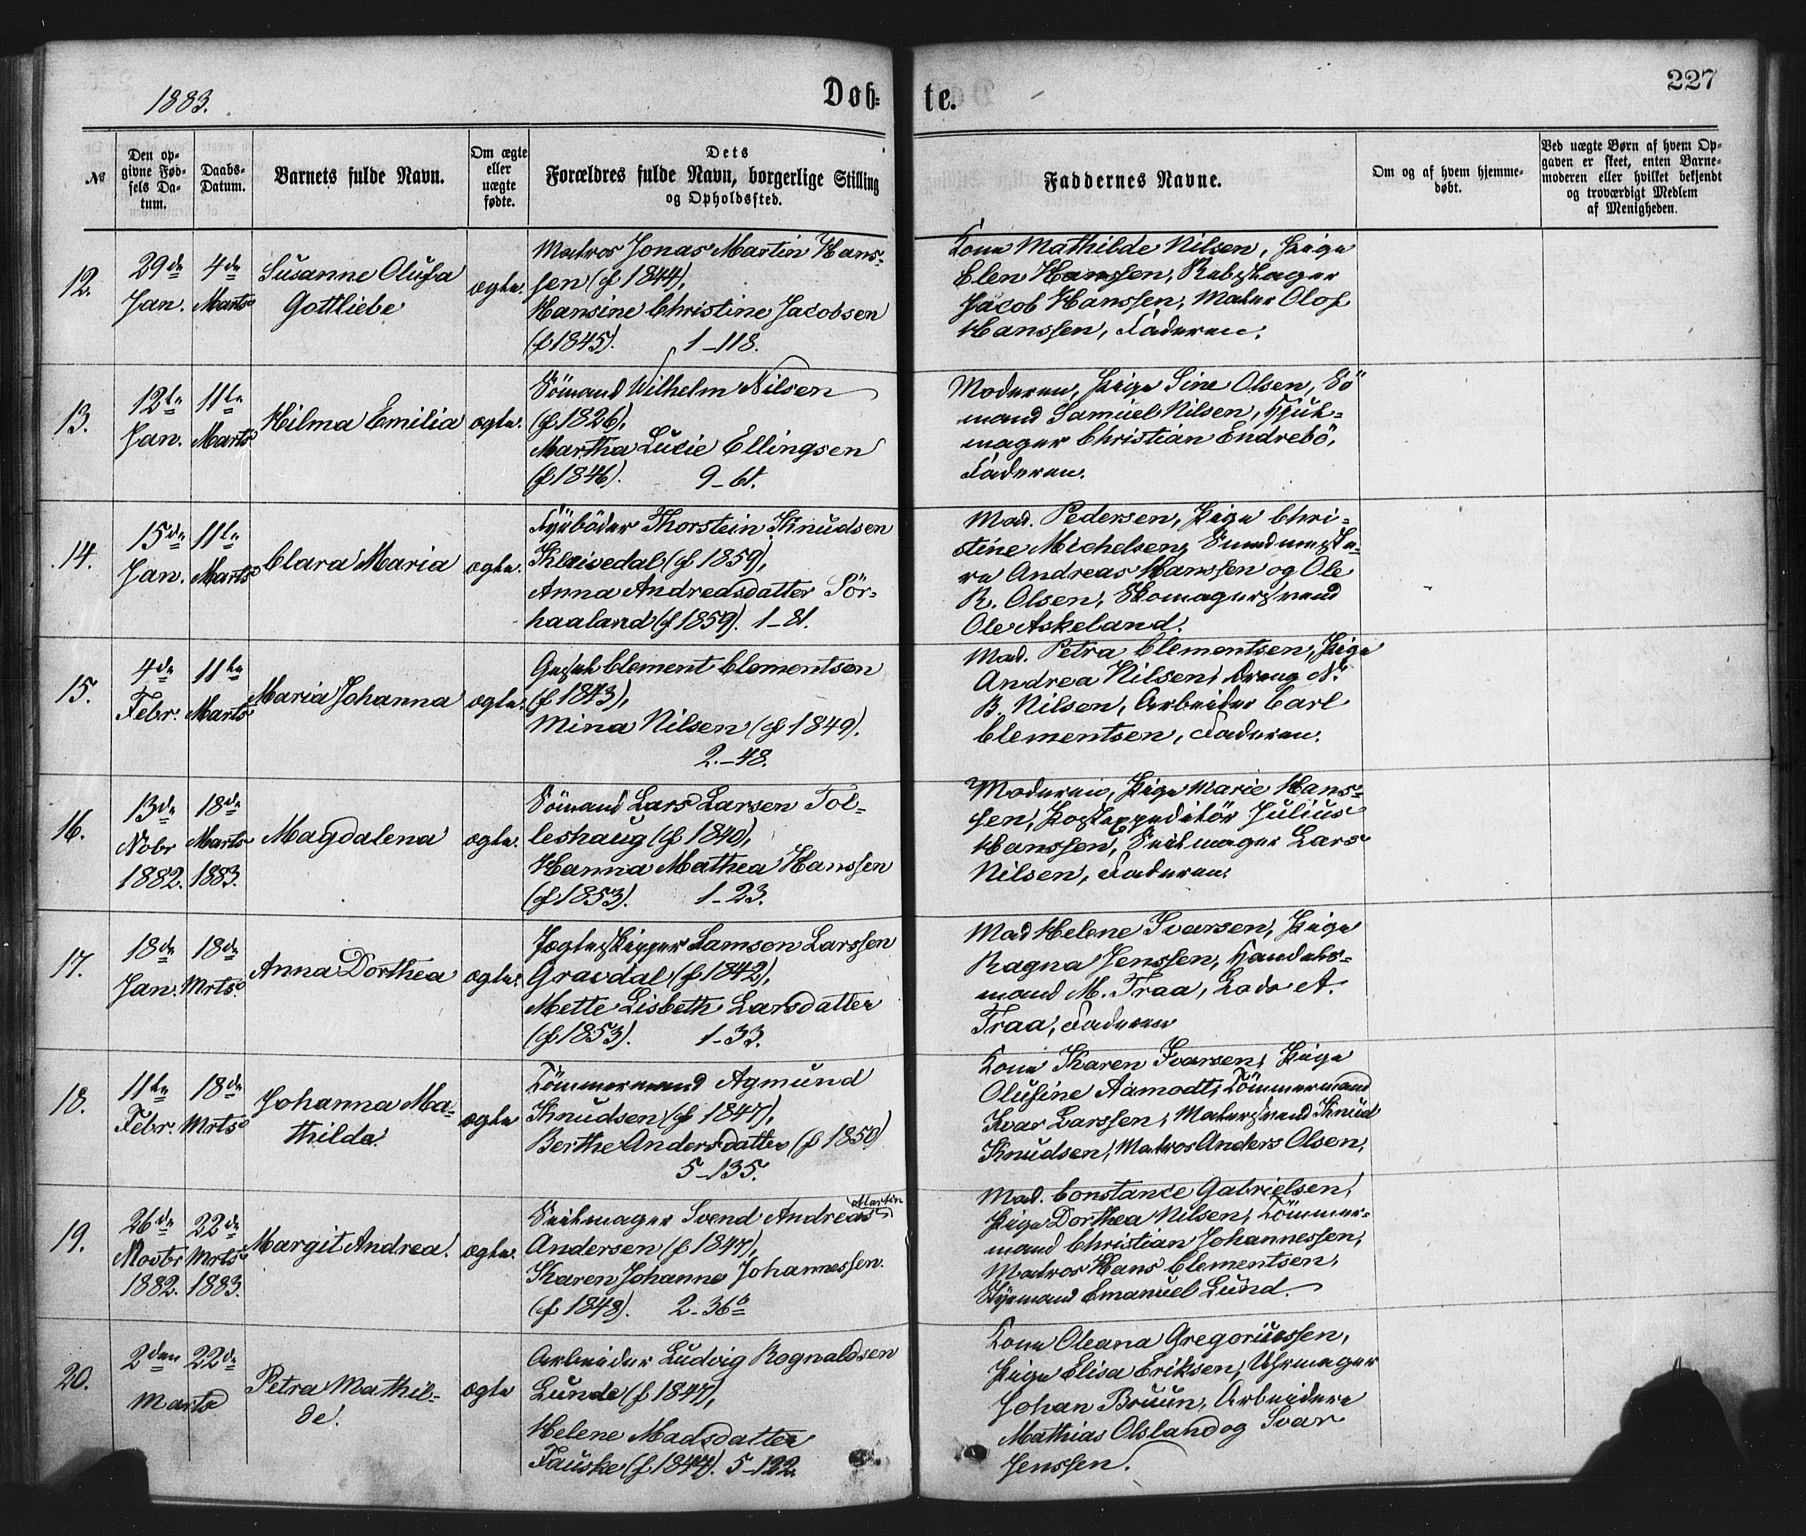 1883.
Døb-
te.
227
№
Den op-
givne Fød-
sels Da-
tum.
Daabs-
Datum.
Barnets fulde Navn.
Om ægte
eller
uægte
fødte.
Dets
Forældres fulde Navn, borgerlige Stilling
og Opholdssted.
Faddernes Navne.
Om og af hvem hjemme-
døbt.
Ved uægte Børn af hvem Op-
gaven er skeet, enten Barne-
moderen eller hvilket bekjendt
og troværdigt Medlem
af Menigheden.
12.
29de
Jan.
4de
Marts
Susanne Olufsa
Gottliebe
ægte.
Matros Jonas Martin Hans-
sen (f 1844),
Hansine Christine Jacobsen
(f 1845). 1-118.
Kone Mathilde Nilsen, Pige
Elen Hanssen, Rebslager
Jacob Hanssen, Maler Olof
Hanssen, Faderen.
13.
12te
Jan.
11te
Marts
Hilma Emilia
ægte.
Sömand Wilhelm Nilsen
(f 1826),
Martha Lucie Ellingsen
(f 1846). 9-61.
Moderen, Pige Sine Olsen, Sö
mand Samuel Nilsen, Hjul-
mager Christian Endrebö,
Faderen.
14.
15de
Jan.
11te
Marts
Clara Maria
ægte.
Fyrböder Thorstein Knudsen
Kleivedal (f 1859),
Anna Andreasdatter Sör-
haaland (f 1859). 1-81.
Mad. Pedersen, Pige Chri-
stine Michelsen,
re Andreas Hanssen og Ole
R. Olsen, Skomagersvend
Ole Askeland.
15.
4de
Febr.
11te
Marts
Maria Johanna
ægte.
Clement Clementsen
(f 1843),
Mina Nilsen (f 1849).
2-48.
Mad. Petra Clementsen, Pige
Andrea Nilsen, Dreng N.
B. Nilsen, Arbeider Carl
Clementsen, Faderen.
16.
13de
Nobr
1882.
18de
Marts
1883.
Magdalena
ægte.
Sömand Lars Larsen Tol-
leshaug (f 1840),
Hanna Mathea Hanssen
(f 1853). 1-23.
Moderen, Pige Marie Hans-
sen, Postexpeditör Julius
Hanssen, Seilmager Lars
Nilsen, Faderen.
17.
18de
Jan.
18de
Mrts.
Anna Dorthea
ægte.
Jægteskipper Samson Larssen
Gravdal (f 1842),
Mette Lisbeth Larsdatter
(f 1853). 1-33.
Mad Helene Ivarsen, Pige
Ragna Jenssen, Handels-
mand M. Traa, Lods A.
Traa, Faderen
18.
11te
Febr.
18de
Mrts
Johanna Ma-
thilde.
ægte
Tömmermand Agmund
Knudsen (f 1847),
Berthe Andersdatter (f 1850)
5-135.
Kone Karen Ivarsen, Pige
Olufine Aamodt, Tömmermand
Ivar Larssen, Malersvend Knud
Knudsen, Matros Anders Olsen,
19.
26de
Novbr
1882.
22de
Mrts
1883.
Margit Andrea.
ægte.
Martin
Seilmager Svend Andreas
Andersen (f 1847),
Karen Johanne Johannessen.
(f 1848). 2-36b
Mad. Constance Gabrielsen,
Pige Dorthea Nilsen, Tömmer-
mand Christian Johannessen,
Matros Hans Clementsen,
Styrmand Emanuel Lund.
20.
2den
22de
Marts
Petra Mathil-
de.
ægte
Arbeider Ludvig Rognaldsen
Lunde (f 1847),
Helene Madsdatter
Fauske (f 1847). 5-122.
Kone Oleana Gregoriussen,
Pige Elisa Eriksen, Uhrmager
Johan Bruun, Arbeidere
Mathias Olsland og Ivar
Jenssen.